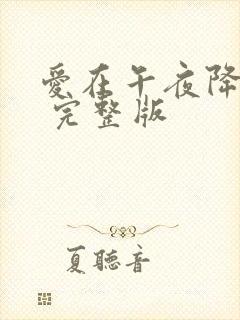 爱在午夜降
完整版
夏聽音